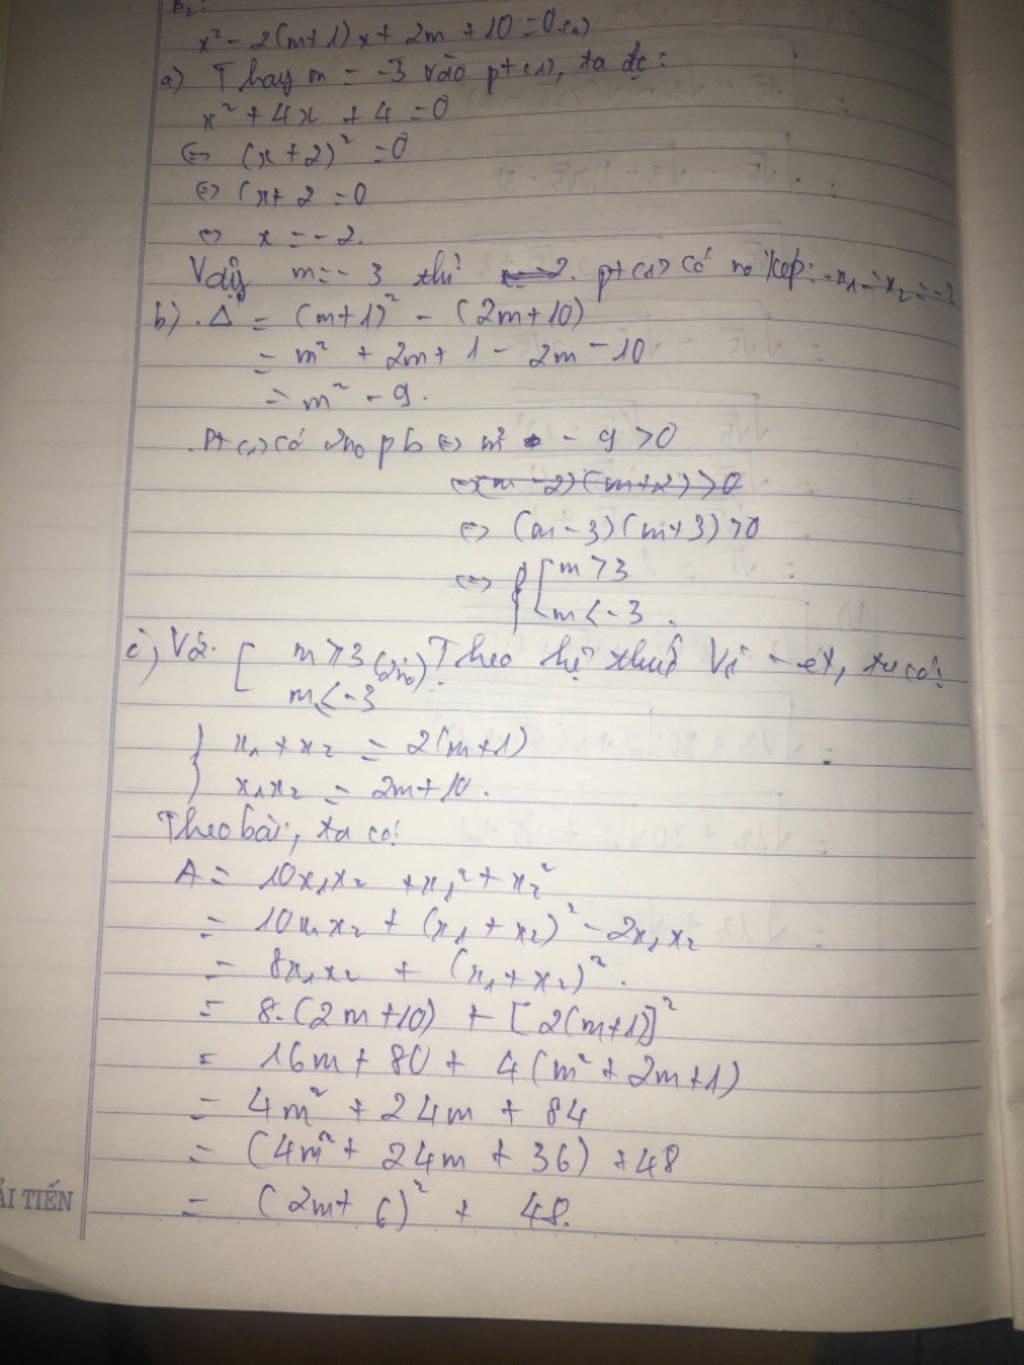 B2:
x² - 2(m+1)x + 2m + 10 = 0 (1)
a) Thay m = -3 vào pt (1), ta đc:
x² + 4x + 4 = 0
⇔ (x+2)² = 0
⇔ (x+2 = 0
⇔ x = -2.
Vậy m = -3 thì pt (1) có no kép: x₁ = x₂ = -2
b) Δ' = (m+1)² - (2m+10)
= m² + 2m + 1 - 2m - 10
= m² - 9.
Pt (1) có 2no pb ⇔ m² - 9 > 0
⇔ (m-2)(m+2) > 0
⇔ (m-3)(m+3) > 0
⇔ { [ m > 3
m < -3.
c) Với [ m ≥ 3 (2no). Theo hệ thức Vi-ét, ta có:
m ≤ -3
{ x₁ + x₂ = 2(m+1)
x₁x₂ = 2m+10.
Theo bài, ta có:
A = 10x₁x₂ + x₁² + x₂²
= 10x₁x₂ + (x₁ + x₂)² - 2x₁x₂
= 8x₁x₂ + (x₁ + x₂)².
= 8.(2m+10) + [2(m+1)]²
= 16m + 80 + 4(m² + 2m+1)
= 4m² + 24m + 84
= (4m² + 24m + 36) + 48
= (2m + 6)² + 48.
ẢI TIẾN